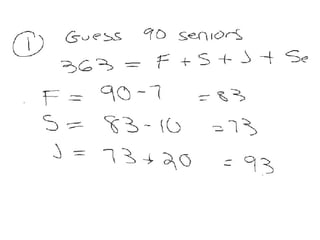 ① Guess 90 seniors
363 = F + S + J + Se
F = 90 - 7 = 83
S = 83 - 10 = 73
J = 73 + 20 = 93